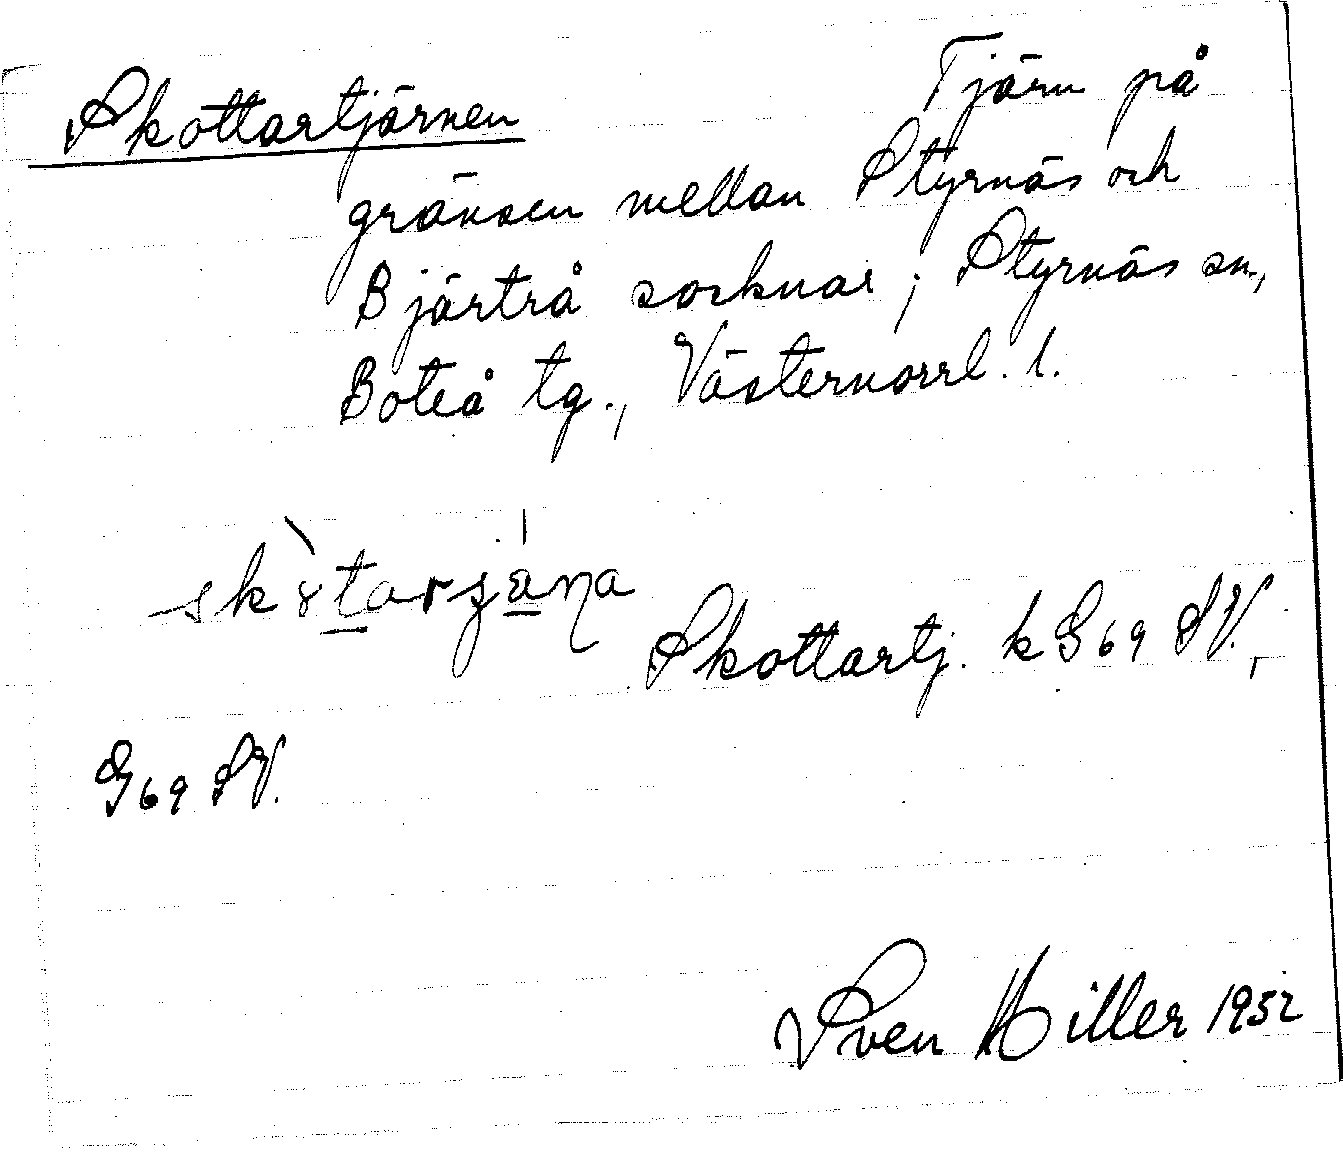 Skottartjärnen
Tjärn på
gränsen mellan Styrnäs och
Bjärtrå socknar; Styrnäs sn.,
Boteå tg., Västernorrl. l.
Skottartj. k G69 SV.,
G69 SV.
Sven Hiller 1952